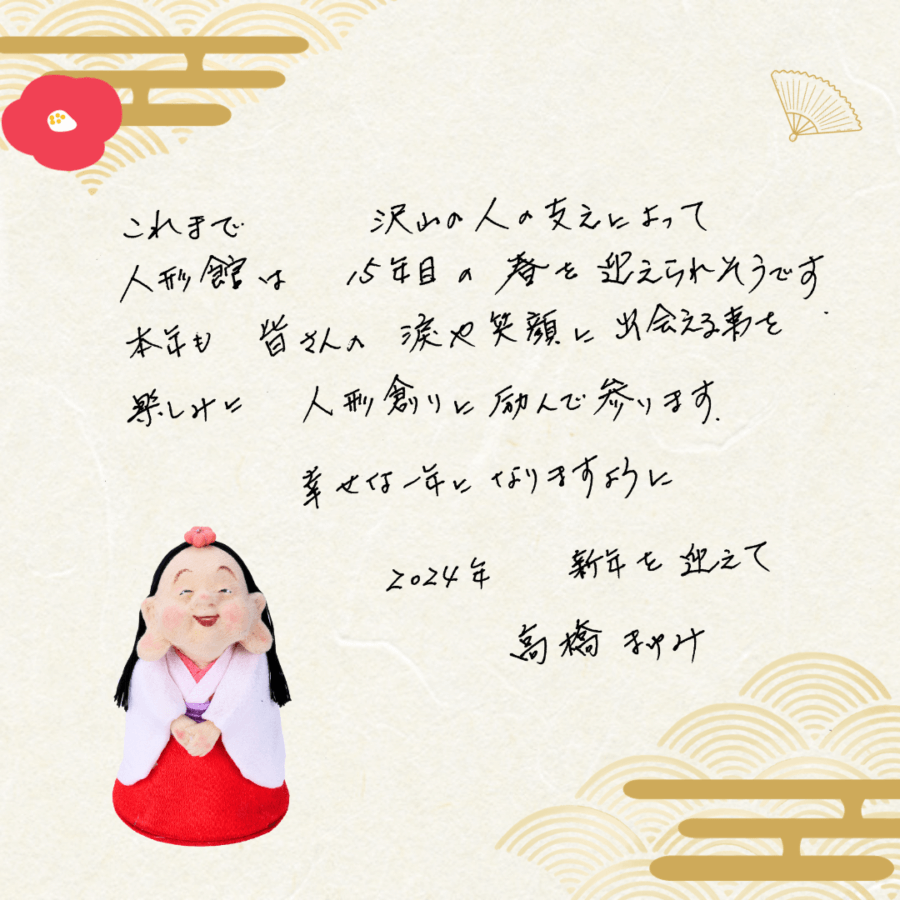 これまで 沢山の人の支えによって
人形館は 15年目の春を迎えられそうです
本年も 皆さんの涙や笑顔に出会える事を
楽しみに 人形創りに励んで参ります.
幸せな一年になりますように
2024年 新年を迎えて
高橋まゆみ